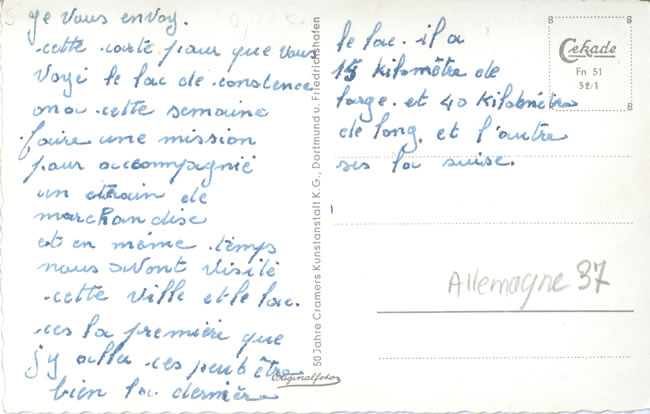 je vous envoy.
cette carte pour que vous
voyé le lac de constence
on a cette semaine
faire une mission
pour accompagnié
un train de
marchandise
et en même temps
nous avont visité
cette ville et le lac.
ces la première que
j'y aller ces peut être
bien la dernière
50 Jahre Cramers Kunstanstalt K.G., Dortmund u. Friedrichshafen
Originalfoto
le lac. il a
15 kilomêtre de
large. et 40 kilomêtre
de long. et l'autre
ses la suise.
Cekade
Fn 51
52/1
Allemagne 37